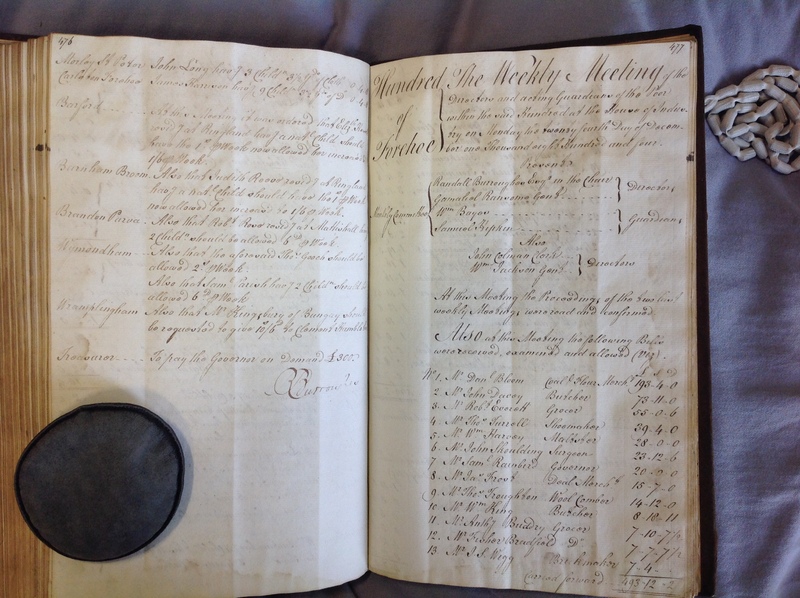 476
Morley St Peters John Long has 7 3 Child
Carleton Forehoe James
Barford At this Meeting it was ordered that
resid.g at Ringland has 7 a nat Child should
have the 1s P Week now allowed her increased to
1/6 P Week.
Burnham Broom Also that Judith resid.g at Ringland
has 7 a nat Child should have the 1s P Week
now allowed her increased to 1/6 P Week.
Brandon Parva Also that Robt Rose resid.g at Mattishall has
2 Childn should be allowed P Week.
Wymondham Also that the aforesaid Thos Gooch should be
allowed 2s P Week.
Also that Saml Larish has 7 2 Childn should be
allowed 6d P Week
Wramplingham Also that Mr Kingsbury of Bungay should
be requested to give 10/6 to Clement
Treasurer To pay the Governor on Demand £300
R Burroughes
477
Hundred of Forehoe
The Weekly Meeting of the
Directors and acting Guardians of the Poor
within the said Hundred at the House of Indus-
try on Monday the twenty fourth Day of Decem-
ber one Thousand eight Hundred and four.
Present
Weekly Committee
Randall Burroughes Esqr in the Chair
Gamaliel Ransome Gent
Directors
Wm Bayes
Samuel Kepkin
Guardians
Also
John Colman Clerk
Wm Jackson Gent
Directors
At this Meeting the Proceedings of the two last
weekly Meetings were read and confirmed.
Also at this Meeting the following Bills
were received, examined and allowed (viz)
£ s d
No 1. Mr Danl Bloom Coal & Flour Mercht 193-4-0
2. Mr John Davey Butcher 73-11-0
3. Mr Robt Everett Grocer 55-0-6
4. Mr Thos Farrell Shoemaker 39-4-0
5. Mr Wm Harvey Maltster 28-0-0
6. Mr John Shoulding Surgeon 23-12-6
7. Mr Saml Rainbird Governor 20-0-0
8. Mr Jas Frost Deal Mercht 15-7-0
9. Mr Thos Troughton Wool Comber 14-12-0
10. Mr Wm King Butcher 8-10-11
11. Mr Anthy Bindry Grocer 7-10-7½
12. Mr Fisher Bradfield Do 7-7-7½
13. Mr J. S. Wigg 7-4-
Carried forward 493-12-2